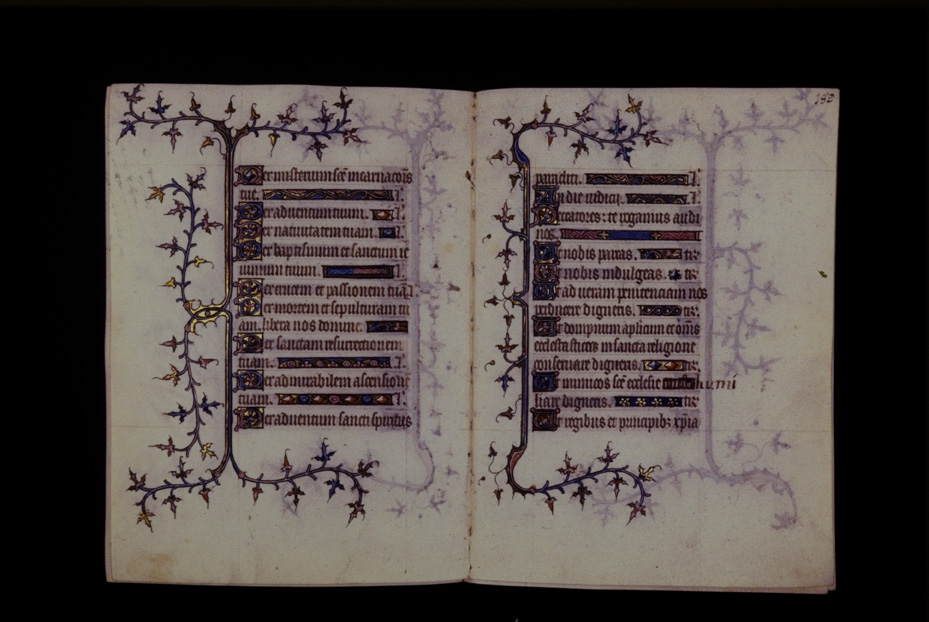 Per misterium sce incarnacois
tue. l'.
Per aduentum tuum. l'.
Per natiuitatem tuam. l'.
Per baptismum et sanctum ie
iunium tuum. l'.
Per crucem et passionem tuā l'.
Per mortem et sepulturam tu
am. libera nos domine.
Per sanctam resurrectionem
tuam. l'.
Per admirabilem ascensionē
tuam. l'.
Per aduentum sancti spiritus
183
paracliti. l'.
In die iudicij. l'.
Peccatores: te rogamus audi
nos.
Ut nobis parcas. te r'.
Ut nobis indulgeas. te r'.
Ut ad ueram penitenciam nos
perducere digneris. te r'.
Ut dompnum aplicum et om̄s
ecclesiasticos in sancta religione
conseruare digneris. te r'.
Ut inimicos sce ecclesie humi
liare digneris. te r'.
Ut regibus et principibz xpia